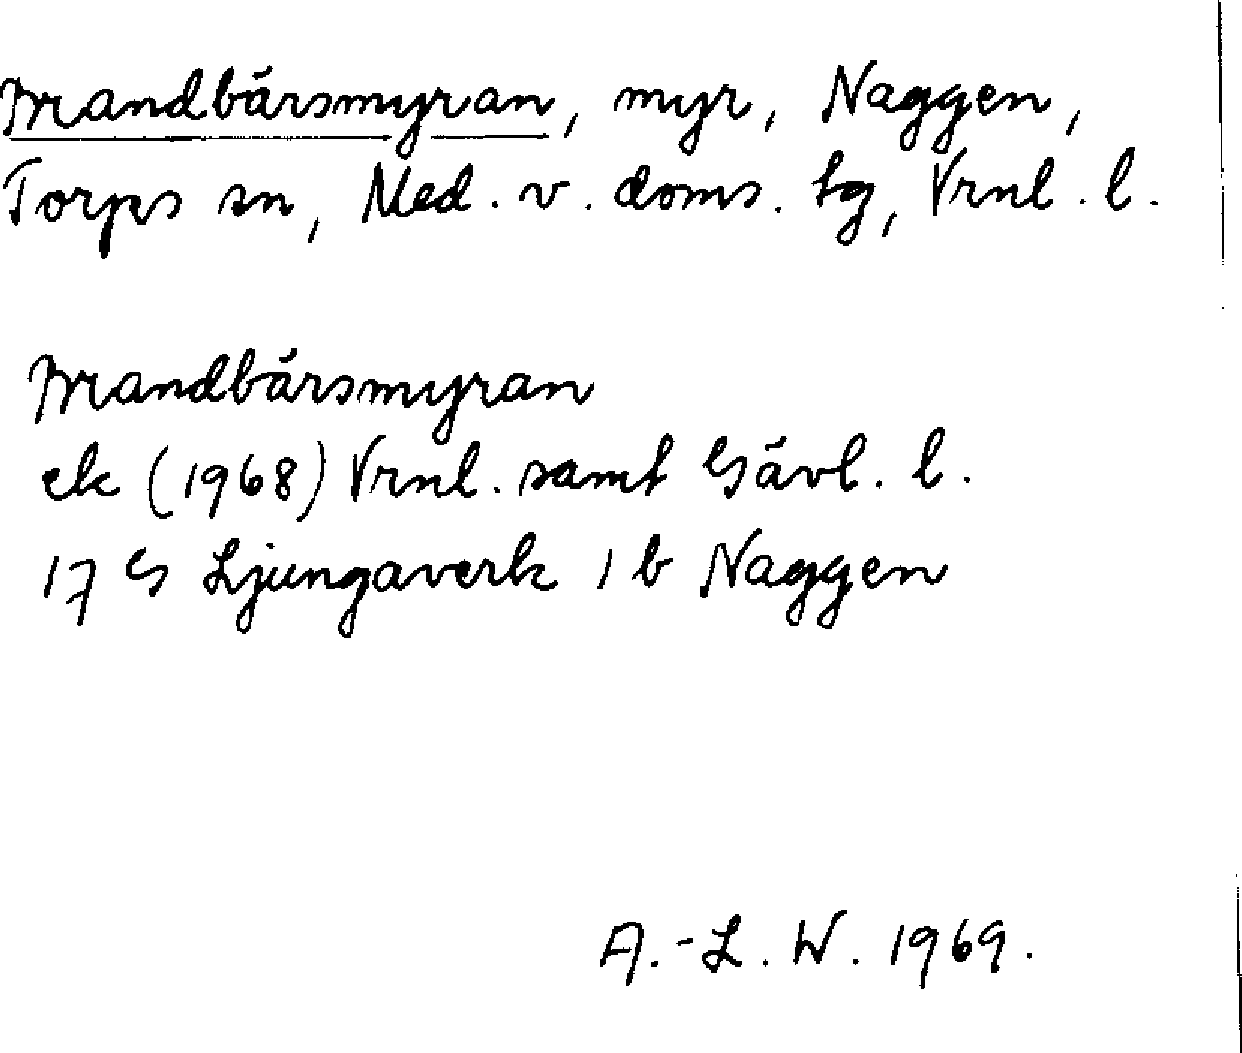 Brandbärsmyran, myr, Naggen,
Torps sn, Med. v. doms. tg, Vrnl. l.
Brandbärsmyran
ek (1968) Vrnl. samt Gävl. l.
17 G Ljungaverk 1 b Naggen
A.-L. W. 1969.